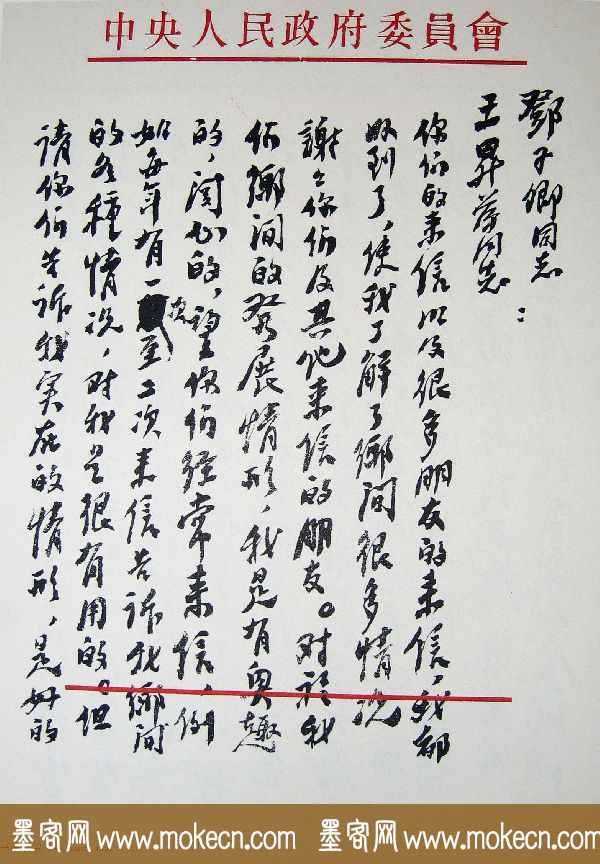 中央人民政府委員會
鄧子卿同志
王同志：
你們的來信以及很多朋友的來信，我都
收到了，使我了解了鄉间很多情况
謝々你們及其他來信的朋友。对於我
們鄉间的發展情形，我是有興趣
的，関心的，望你們經常來信，例
如每年有一次至二次來信告訴我鄉间
的各種情况，对我是很有用的。但
請你們告訴我实在的情形，是好的
墨客网 www.mokecn.com 墨客网 www.mokecn.com